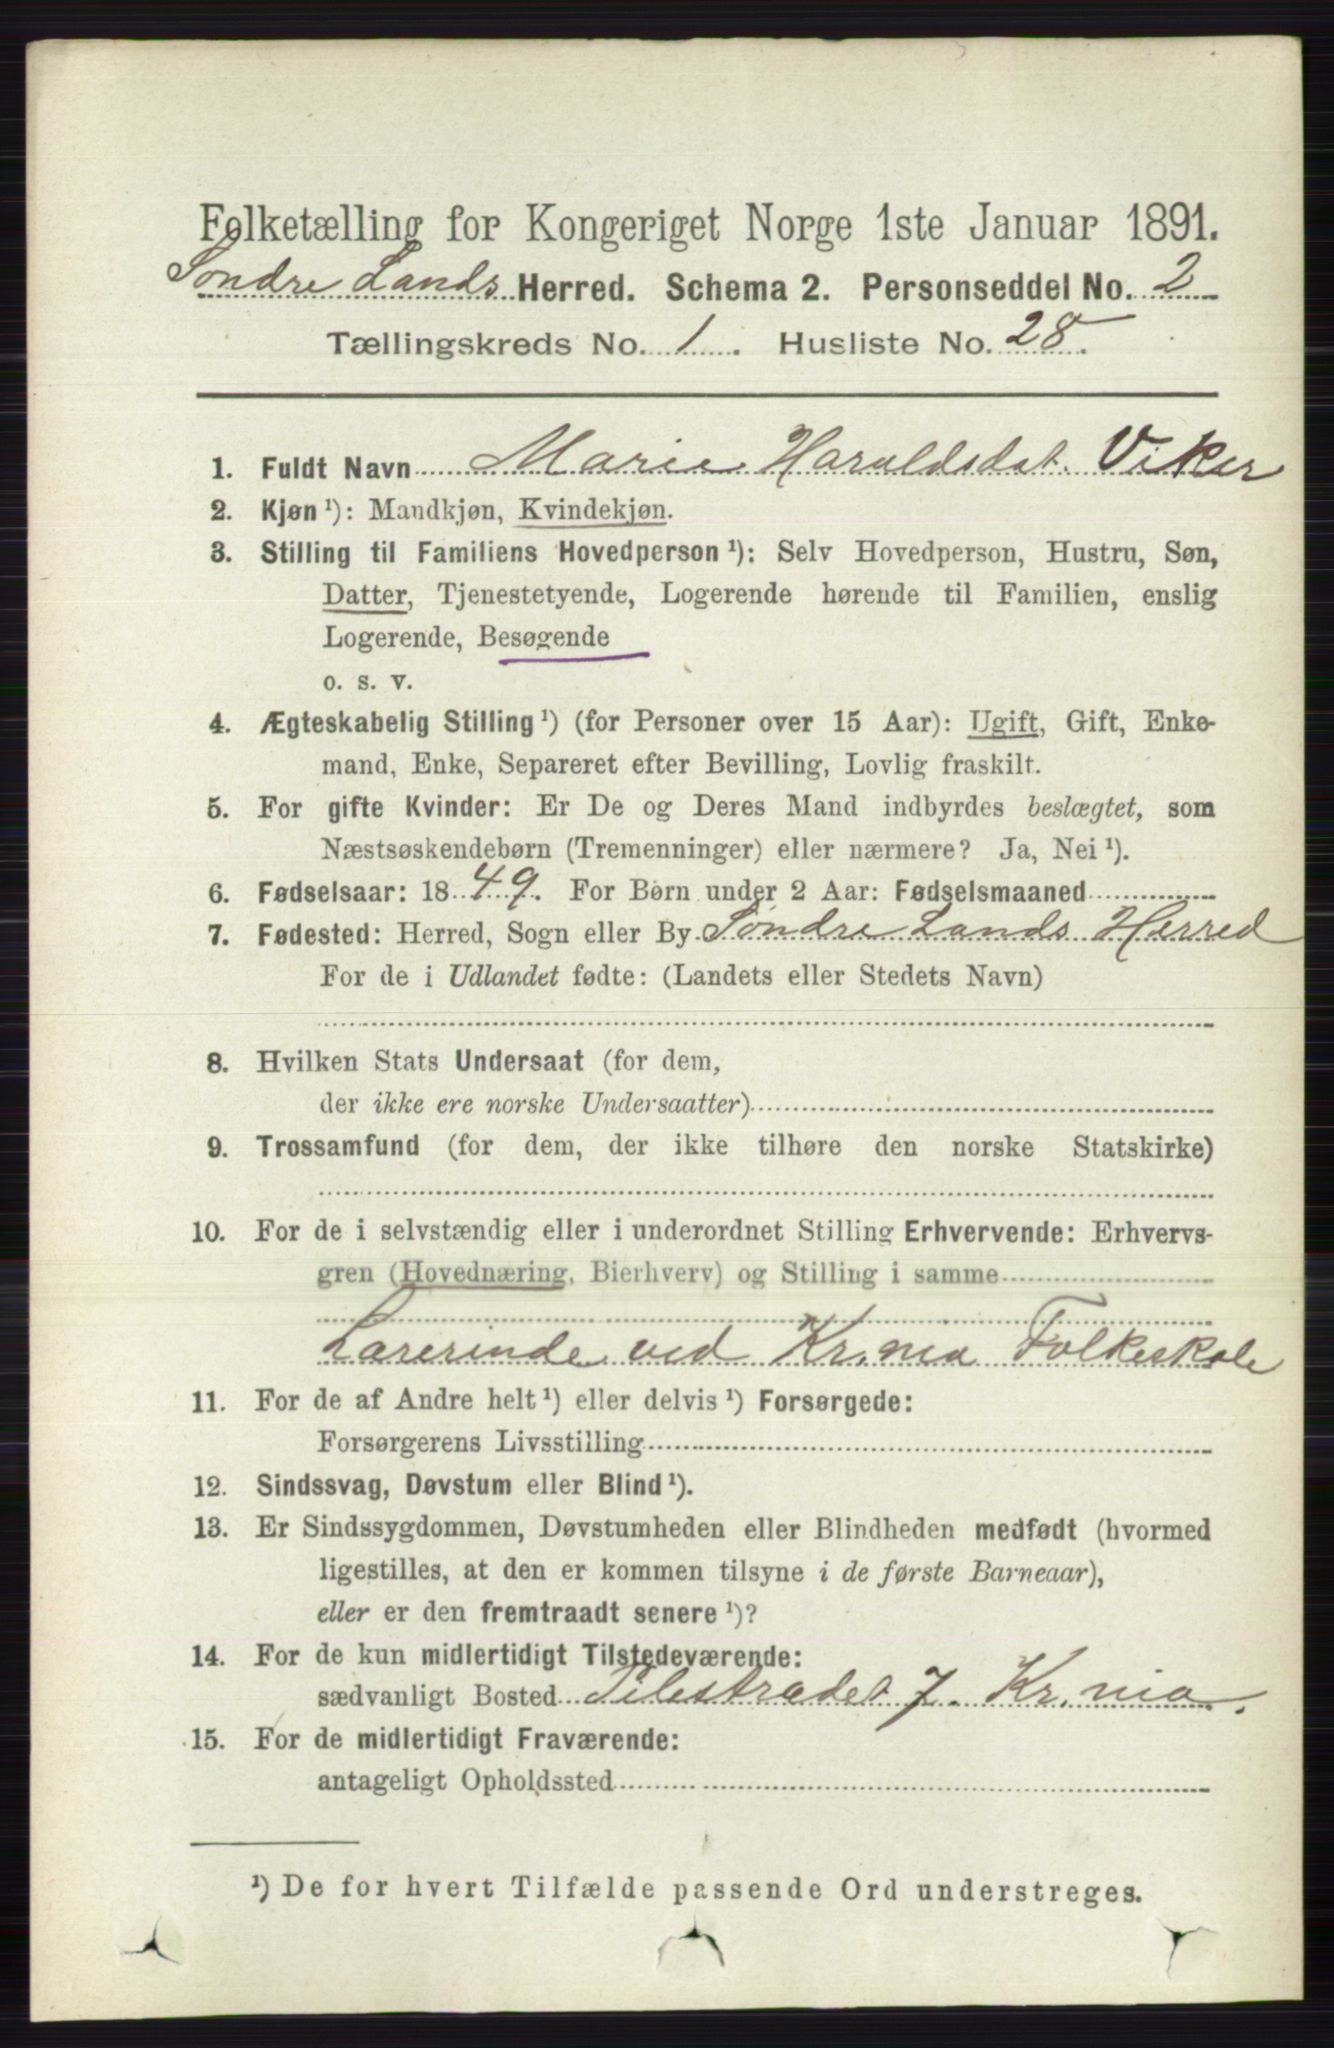 Folketælling for Kongeriget Norge 1ste Januar 1891.
Søndre Lands Herred. Schema 2. Personseddel No. 2
Tællingskreds No. 1. Husliste No. 28.
1. Fuldt Navn Marie Haraldsdat. Viker
2. Kjøn ¹): Mandkjøn, Kvindekjøn.
3. Stilling til Familiens Hovedperson ¹): Selv Hovedperson, Hustru, Søn,
Datter, Tjenestetyende, Logerende hørende til Familien, enslig
Logerende, Besøgende
o. s. v.
4. Ægteskabelig Stilling ¹) (for Personer over 15 Aar): Ugift, Gift, Enke-
mand, Enke, Separeret efter Bevilling, Lovlig fraskilt.
5. For gifte Kvinder: Er De og Deres Mand indbyrdes beslægtet, som
Næstsøskendebørn (Tremenninger) eller nærmere? Ja, Nei ¹).
6. Fødselsaar: 1849. For Børn under 2 Aar: Fødselsmaaned
7. Fødested: Herred, Sogn eller By Søndre Lands Herred
For de i Udlandet fødte: (Landets eller Stedets Navn)
8. Hvilken Stats Undersaat (for dem,
der ikke ere norske Undersaatter)
9. Trossamfund (for dem, der ikke tilhøre den norske Statskirke)
10. For de i selvstændig eller i underordnet Stilling Erhvervende: Erhvervs-
gren (Hovednæring, Bierhverv) og Stilling i samme
Lærerinde ved Kr.nia Folkeskole
11. For de af Andre helt ¹) eller delvis ¹) Forsørgede:
Forsørgerens Livsstilling
12. Sindssvag, Døvstum eller Blind ¹).
13. Er Sindssygdommen, Døvstumheden eller Blindheden medfødt (hvormed
ligestilles, at den er kommen tilsyne i de første Barneaar),
eller er den fremtraadt senere ¹)?
14. For de kun midlertidigt Tilstedeværende:
sædvanligt Bosted Pilestrædet 7. Kr.nia.
15. For de midlertidigt Fraværende:
antageligt Opholdssted
¹) De for hvert Tilfælde passende Ord understreges.